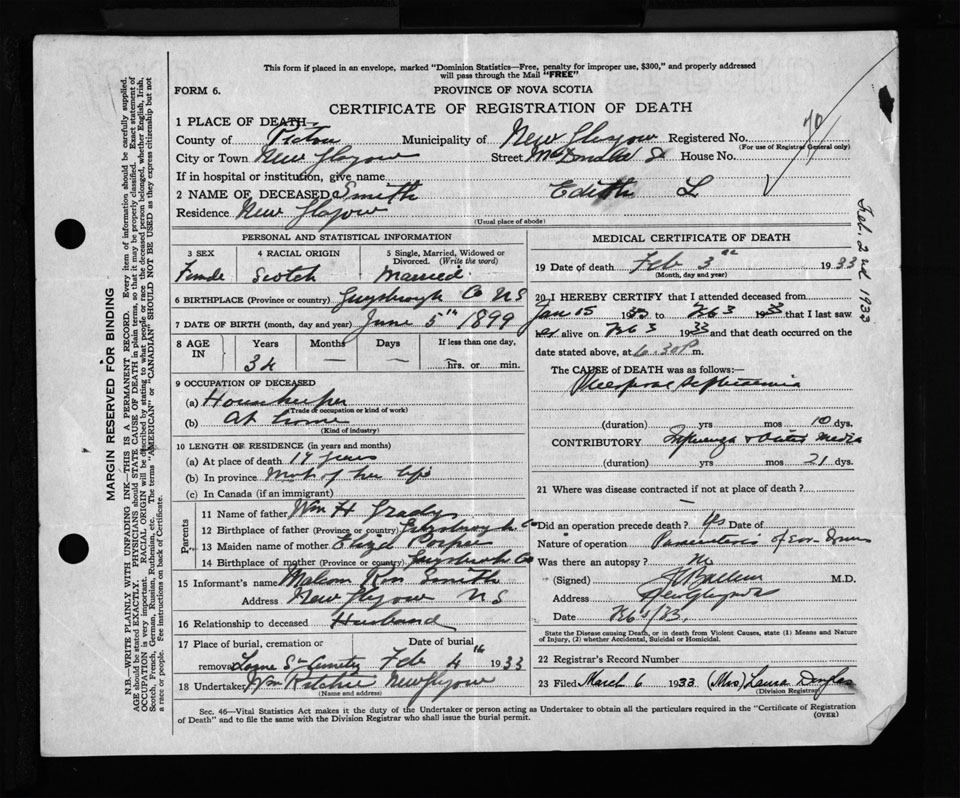 This form if placed in an envelope, marked "Dominion Statistics—Free, penalty for improper use, $300," and properly addressed
will pass through the Mail "FREE"
FORM 6. PROVINCE OF NOVA SCOTIA
CERTIFICATE OF REGISTRATION OF DEATH
1 PLACE OF DEATH
County of Pictou Municipality of New Glasgow Registered No. 70
(For use of Registrar General only)
City or Town New Glasgow Street House No.
If in hospital or institution, give name
2 NAME OF DECEASED Smith Edith L
Residence New Glasgow
(Usual place of abode)
PERSONAL AND STATISTICAL INFORMATION
3 SEX 4 RACIAL ORIGIN 5 Single, Married, Widowed or Divorced. (Write the word)
Female Scotch Married
6 BIRTHPLACE (Province or country) Guysborough Co NS
7 DATE OF BIRTH (month, day and year) June 5th 1899
8 AGE IN Years Months Days If less than one day,
34 — — hrs. or min.
9 OCCUPATION OF DECEASED
(a) Housekeeper
(Trade or occupation or kind of work)
(b) At home
(Kind of industry)
10 LENGTH OF RESIDENCE (in years and months)
(a) At place of death years
(b) In province Most of her life
(c) In Canada (if an immigrant)
Parents
11 Name of father Wm H Grady
12 Birthplace of father (Province or country) Guysborough Co
13 Maiden name of mother
14 Birthplace of mother (Province or country) Guysborough Co
15 Informant's name Smith
Address New Glasgow NS
16 Relationship to deceased Husband
17 Place of burial, cremation or Date of burial
removal Lorne St Cemetery Feb 4th 1933
18 Undertaker Wm Ritchie New Glasgow
(Name and address)
MEDICAL CERTIFICATE OF DEATH
19 Date of death Feb 3rd 1933
(Month, day and year)
20 I HEREBY CERTIFY that I attended deceased from
Jan 15 1933 to Feb 3 1933 that I last saw
her alive on Feb 3 1933 and that death occurred on
date stated above, at 6.30 P m.
The CAUSE of DEATH was as follows:
Septicaemia
(duration) yrs mos 10 dys.
CONTRIBUTORY Influenza & Otitis Media
(duration) yrs mos 21 dys.
21 Where was disease contracted if not at place of death?
Did an operation precede death? Yes Date of
Nature of operation Paracentesis of Ear-Drums
Was there an autopsy? No
(Signed) M.D.
Address New Glasgow
Date
State the Disease causing Death, or in death from Violent Causes, state (1) Means and Nature
of Injury, (2) whether Accidental, Suicidal or Homicidal.
22 Registrar's Record Number
23 Filed March 6 1933 (Mrs) Laura Douglas
(Division Registrar)
Sec. 46—Vital Statistics Act makes it the duty of the Undertaker or person acting as Undertaker to obtain all the particulars required in the "Certificate of Registration
of Death" and to file the same with the Division Registrar who shall issue the burial permit.
(OVER)
Feb. 2nd 1933
MARGIN RESERVED FOR BINDING
N.B.—WRITE PLAINLY WITH UNFADING INK—THIS IS A PERMANENT RECORD. Every item of information should be carefully supplied.
AGE should be stated EXACTLY. PHYSICIANS should STATE CAUSE OF DEATH in plain terms, so that it may be properly classified. Exact statement of
OCCUPATION is very important. RACIAL ORIGIN will be described by stating to what people or race the deceased person belonged, whether English, Irish,
Scotch, French, German, Russian, Ruthenian, etc. The terms "AMERICAN" or "CANADIAN" SHOULD NOT BE USED as they express citizenship but not
a race or people. See instructions on back of Certificate.